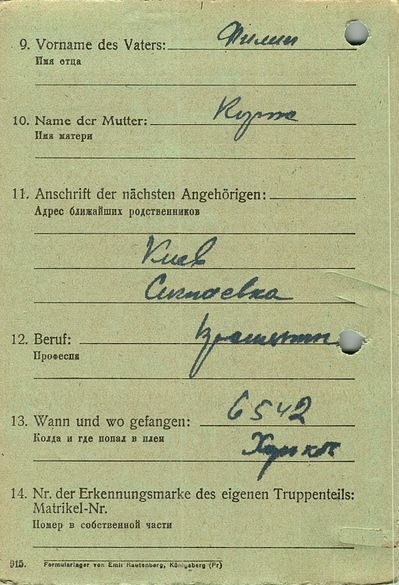 9. Vorname des Vaters:
Имя отца
10. Name der Mutter:
Имя матери
11. Anschrift der nächsten Angehörigen:
Адрес ближайших родственников
Киев
12. Beruf:
Професия
13. Wann und wo gefangen: 6 5 42
Колда и где попал в плен Харьков
14. Nr. der Erkennungsmarke des eigenen Truppenteils:
Matrikel-Nr.
Номер в собственной части
915. Formularlager von Emil Rautenberg, Königsberg (Pr)